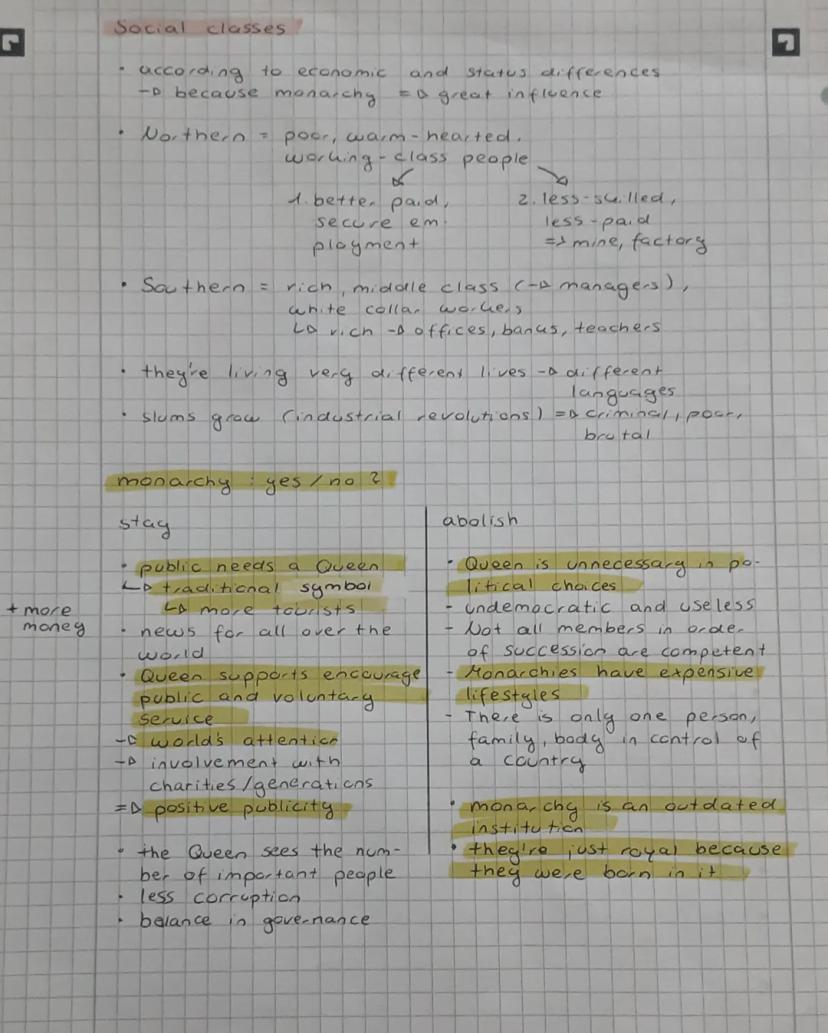 Social classes
• according to economic and status differences
→ because monarchy ⇒ great influence
• Northern = poor, warm-hearted,
working-class people
1. better paid,
secure em-
ployment
2. less-skilled,
less-paid
=> mine, factory
• Southern = rich, middle class (→ managers),
white collar workers
↳ rich → offices, banks, teachers
• they're living very different lives → different
languages
• slums grow (industrial revolutions) ⇒ criminal, poor,
brutal
monarchy : yes / no ?
stay
• public needs a Queen
↳ traditional symbol
↳ more tourists
+ more
money
• news for all over the
world
• Queen supports encourage
public and voluntary
service
→ world's attention
→ involvement with
charities/generations
⇒ positive publicity
• the Queen sees the num-
ber of important people
• less corruption
• balance in governance
abolish
• Queen is unnecessary in po-
litical choices
- undemocratic and useless
- Not all members in order
of succession are competent
- Monarchies have expensive
lifestyles
- There is only one person,
family, body in control of
a country
• monarchy is an outdated
institution
• they're just royal because
they were born in it